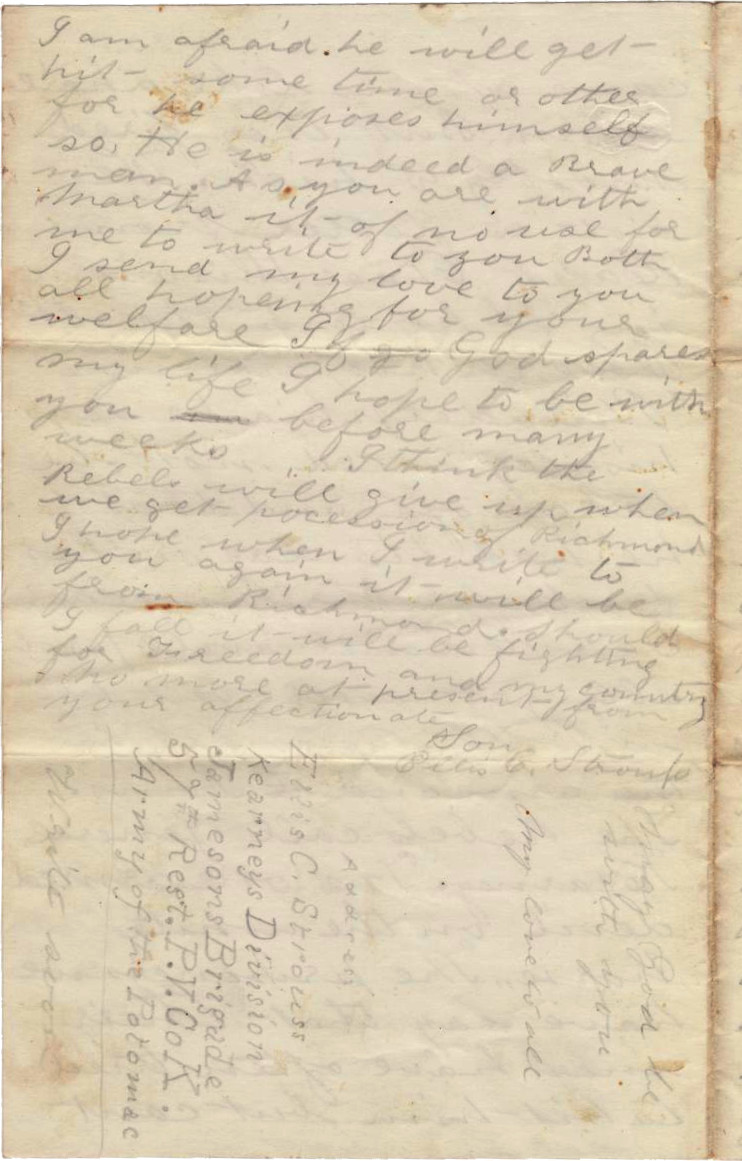 I am afraid he will get
hit some time or other
for he exposes himself
so. He is indeed a Brave
man. As you are with
Martha it of no use for
me to write to you Both
I send my love to you
all hopeing for your
welfare If God spares
my life I hope to be with
you before many
weeks I think the
Rebels will give up when
we get pocession of Richmond
I hope when I write to
you again it will be
from Richmond. Should
I fall it will be fighting
for Freedom and my country
no more at present from
your affectionate
Son
Ellis C. Strouss
May God be
with you
My love to all
Address
Ellis C. Strouss
Kearneys Division
Jamesons Brigade
57th Regt. P.V. Co K.
Army of the Potomac
Write soon